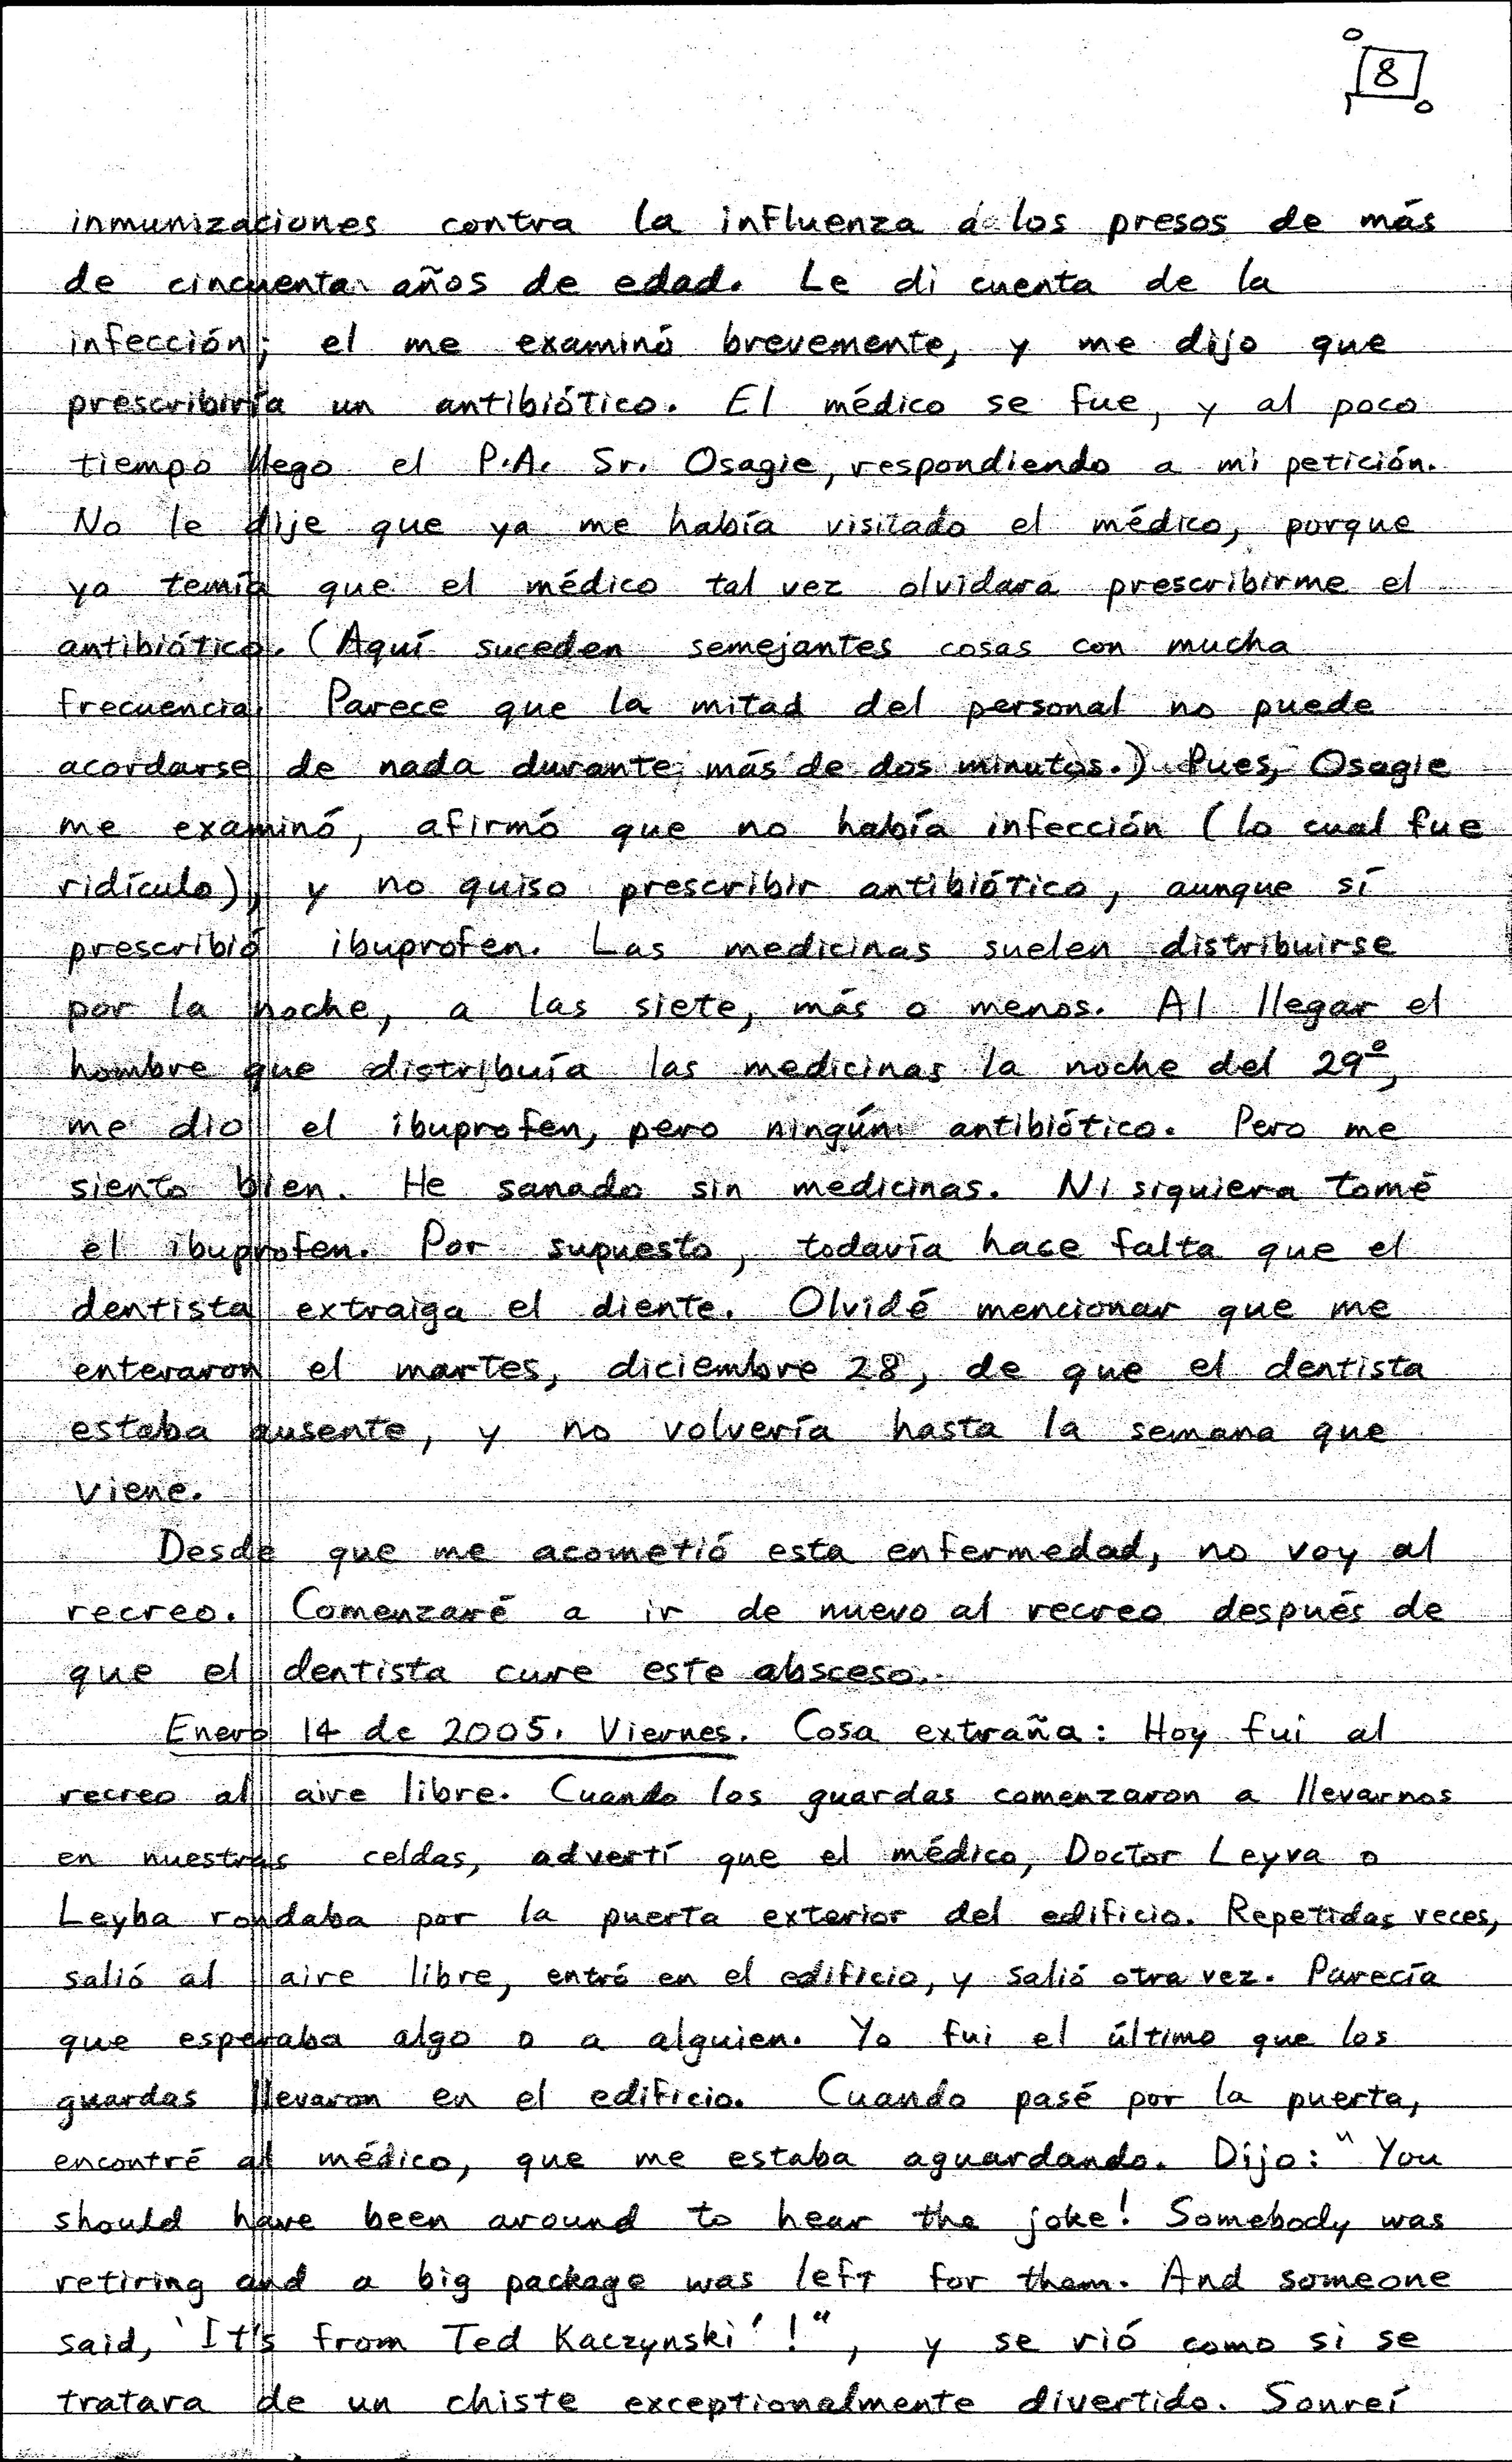 8
inmunizaciones contra la influenza a los presos de más
de cincuenta años de edad. Le di cuenta de la
infección; el me examinó brevemente, y me dijo que
prescribiría un antibiótico. El médico se fue, y al poco
tiempo llego el P.A. Sr. Osagie, respondiendo a mi petición.
No le dije que ya me había visitado el médico, porque
yo temía que el médico tal vez olvidara prescribirme el
antibiótico. (Aquí suceden semejantes cosas con mucha
frecuencia. Parece que la mitad del personal no puede
acordarse de nada durante más de dos minutos.) Pues, Osagie
me examinó, afirmó que no había infección (lo cual fue
ridículo), y no quiso prescribir antibiótico, aunque sí
prescribió ibuprofen. Las medicinas suelen distribuirse
por la noche, a las siete, más o menos. Al llegar el
hombre que distribuía las medicinas la noche del 29º,
me dio el ibuprofen, pero ningún antibiótico. Pero me
siento bien. He sanado sin medicinas. Ni siquiera tomé
el ibuprofen. Por supuesto, todavía hace falta que el
dentista extraiga el diente. Olvidé mencionar que me
enteraron el martes, diciembre 28, de que el dentista
estaba ausente, y no volvería hasta la semana que
viene.
Desde que me acometió esta enfermedad, no voy al
recreo. Comenzaré a ir de nuevo al recreo después de
que el dentista cure este absceso.
Enero 14 de 2005. Viernes. Cosa extraña: Hoy fui al
recreo al aire libre. Cuando los guardas comenzaron a llevarnos
en nuestras celdas, advertí que el médico, Doctor Leyva o
Leyba rondaba por la puerta exterior del edificio. Repetidas veces,
salió al aire libre, entró en el edificio, y salió otra vez. Parecía
que esperaba algo o a alguien. Yo fui el último que los
guardas llevaron en el edificio. Cuando pasé por la puerta,
encontré al médico, que me estaba aguardando. Dijo: "You
should have been around to hear the joke! Somebody was
retiring and a big package was left for them. And someone
said, 'It's from Ted Kaczynski'!", y se rió como si se
tratara de un chiste exceptionalmente divertido. Sonreí